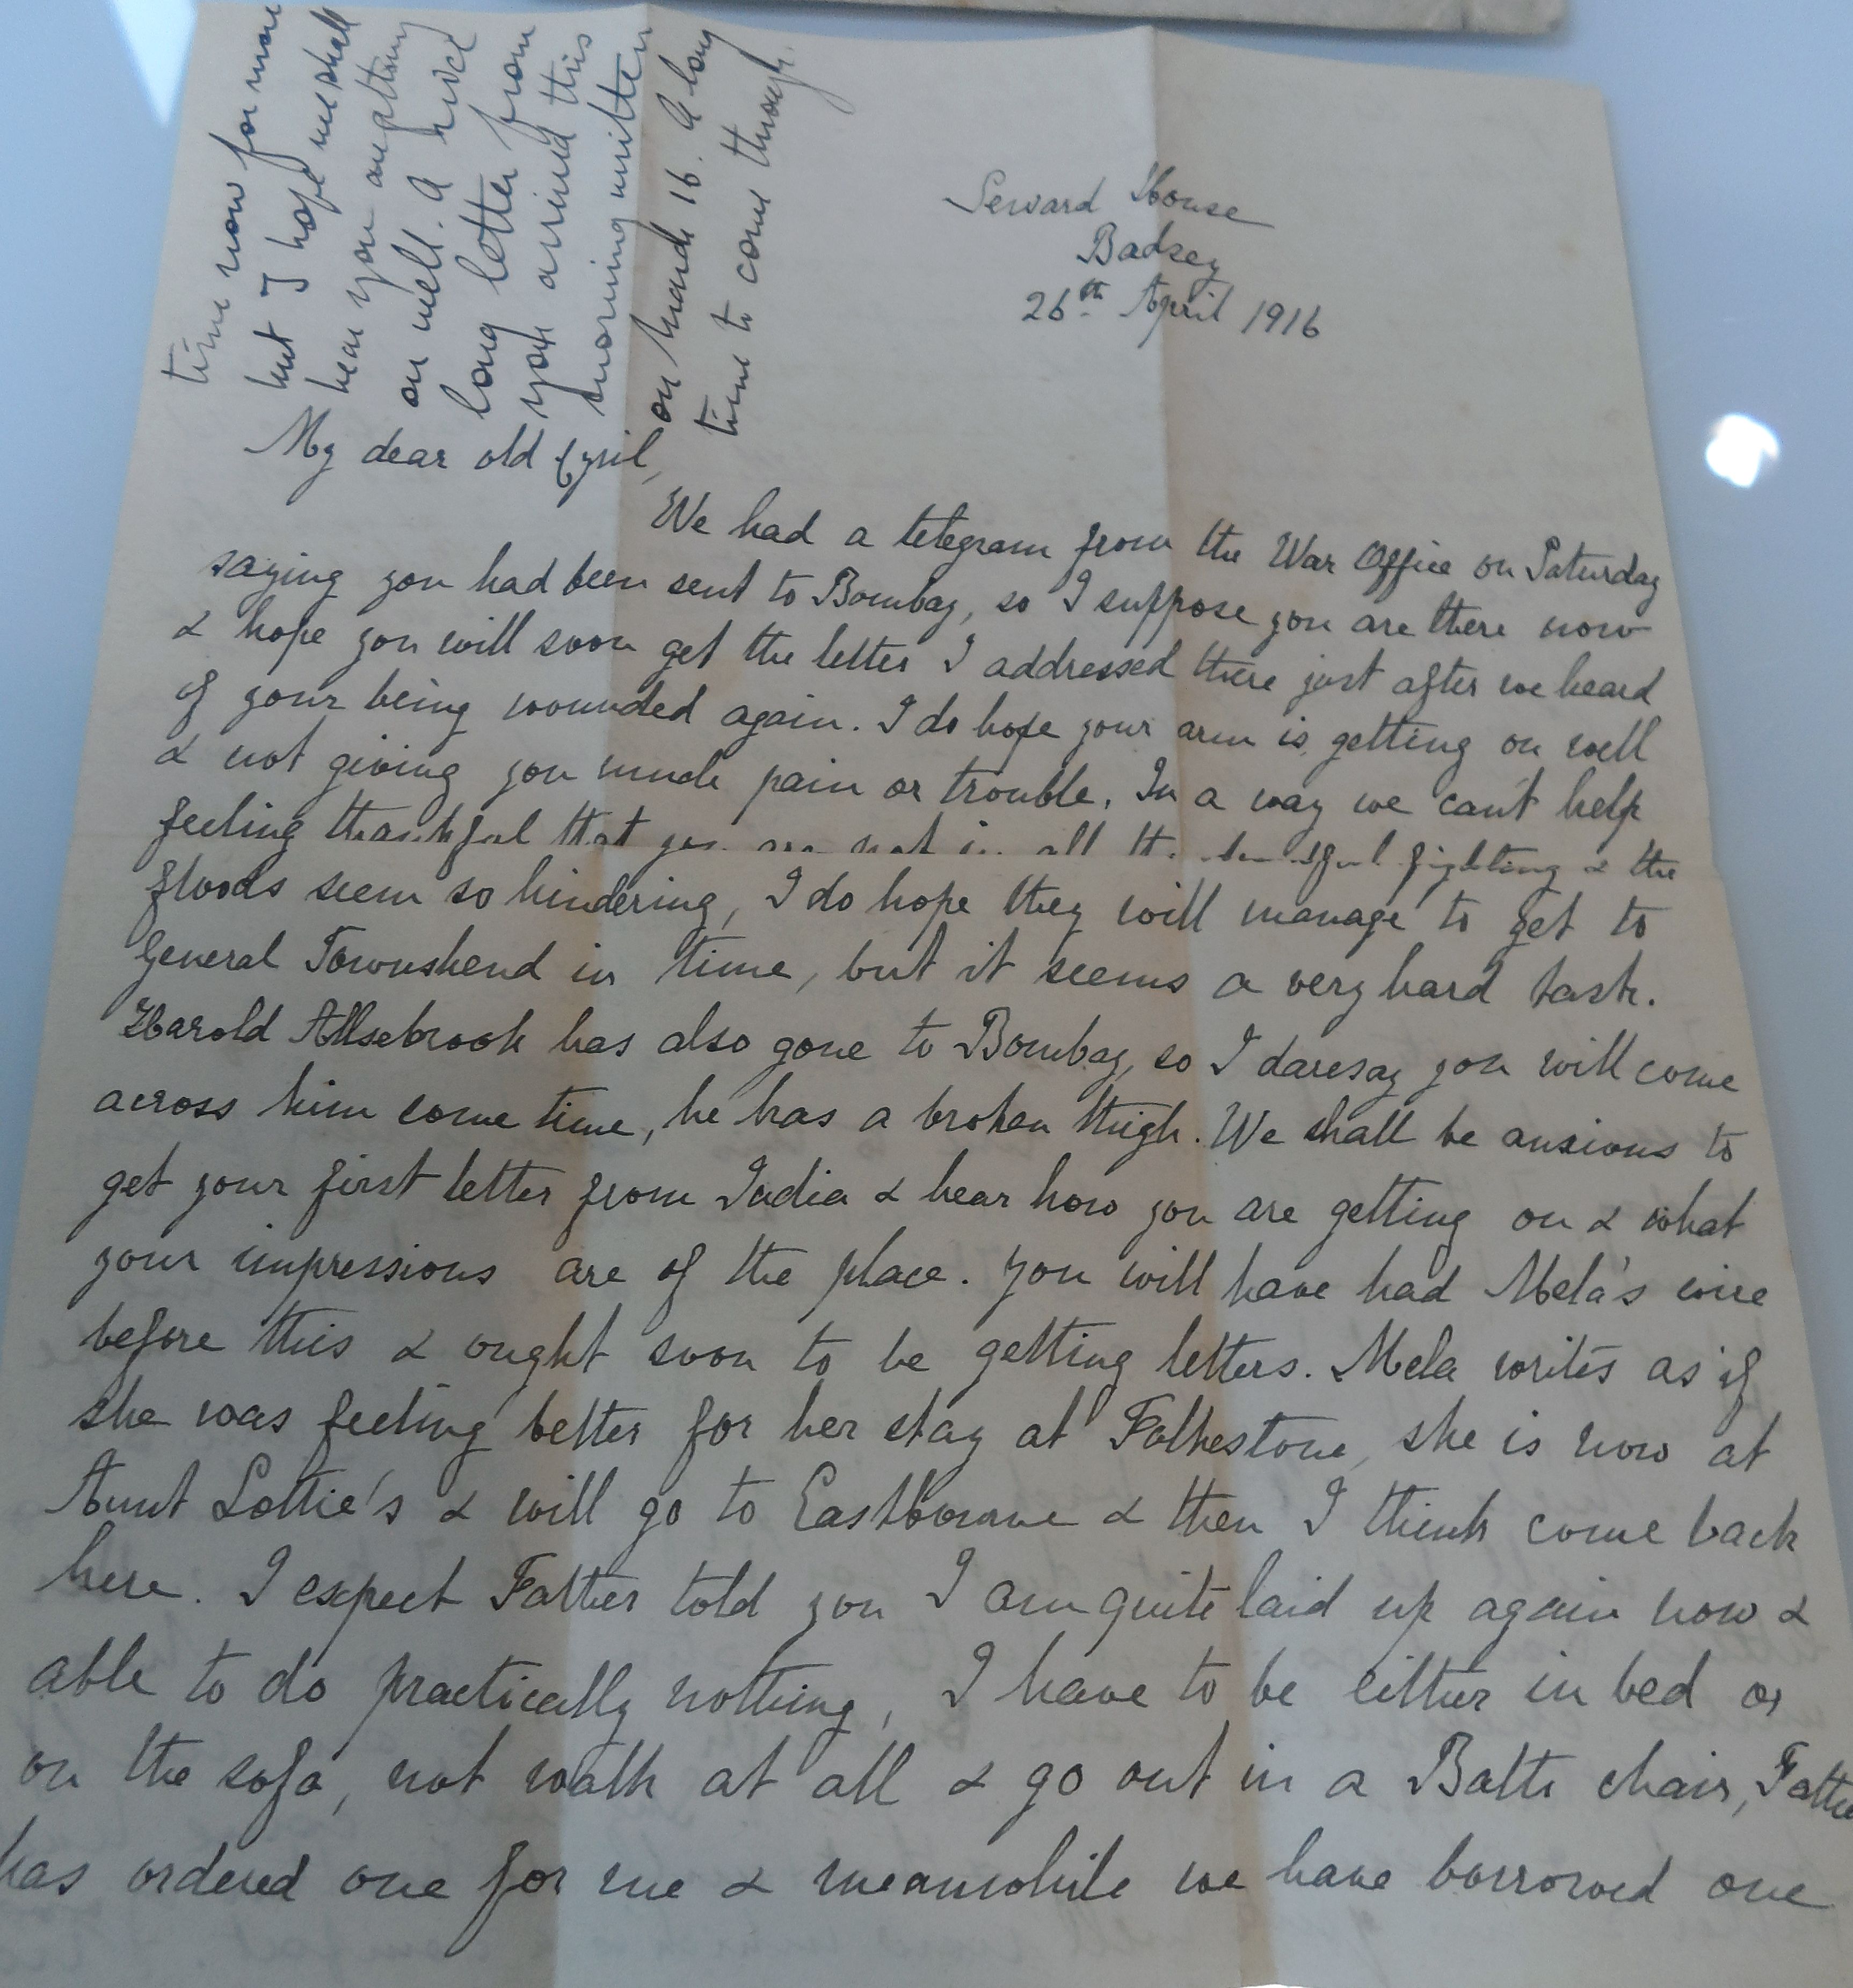 Seward House
Badsey
26th April 1916
My dear old Cyril,
We had a telegram from the War Office on Saturday
saying you had been sent to Bombay, so I suppose you are there now
& hope you will soon get the letter I addressed there just after we heard
of your being wounded again. I do hope your arm is getting on well
& not giving you much pain or trouble. In a way we can't help
feeling thankful that you are not in all the fighting & the
floods seem so hindering, I do hope they will manage to get to
General Townshend in time, but it seems a very hard task.
Harold Allsebrook has also gone to Bombay, so I daresay you will come
across him some time, he has a broken thigh. We shall be anxious to
get your first letter from India & hear how you are getting on & what
your impressions are of the place. You will have had Mela's wire
before this & ought soon to be getting letters. Mela writes as if
she was feeling better for her stay at Folkestone, she is now at
Aunt Lottie's & will go to Eastbourne & then I think come back
here. I expect Father told you I am quite laid up again now &
able to do practically nothing, I have to be either in bed or
on the sofa, not walk at all & go out in a Bath chair, Father
has ordered one for me & meanwhile we have borrowed one
time now for more
but I hope we shall
hear you are getting
on well. A nice
long letter from
you arrived this
morning written
on March 16. A long
time to come through.